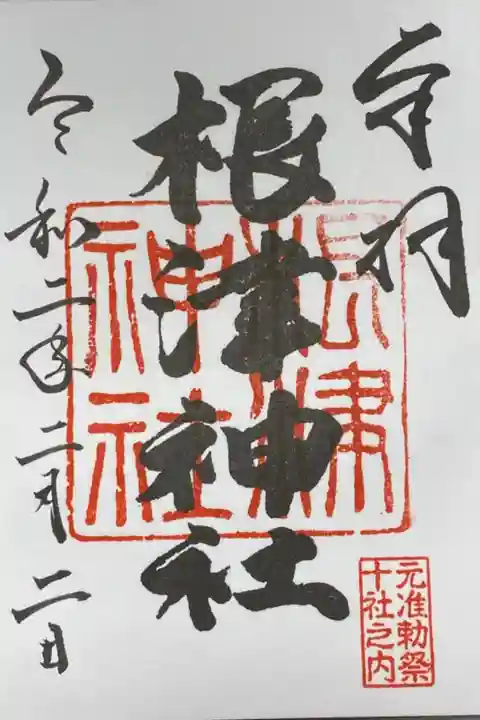 奉拝
根津神社
令和二年二月二日
根津
神社
元准勅祭
十社之内